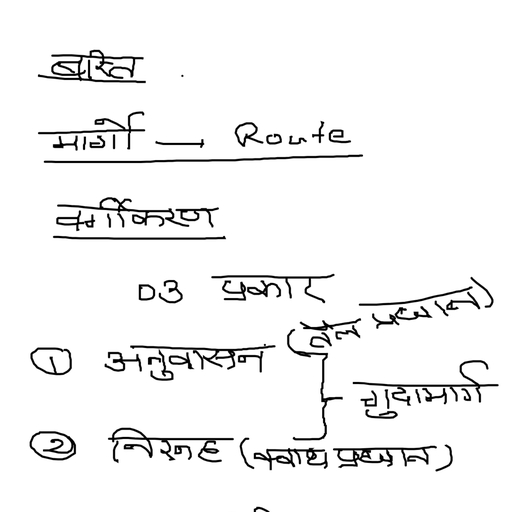 बस्ति
मार्गो — Route
वर्गीकरण
03 प्रकार
① अनुवासन (तैल प्रधान)
गुदामार्ग
② निरूह (क्वाथ प्रधान)